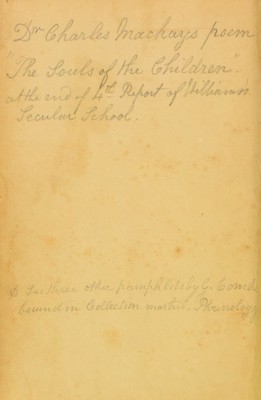 Dr Charles Mackays poem
"The Souls of the Children".
at the end of 4th Report of Williams's
Secular School.
See three other pamphlets by G. Combe
bound in Collection marked. Phrenology